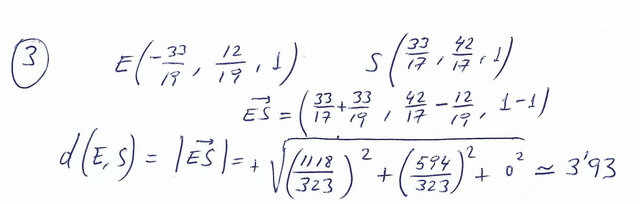 ③ E(-33/19, 12/19, 1) S(33/17, 42/17, 1)
ES⃗ = (33/17 + 33/19, 42/17 - 12/19, 1-1)
d(E,S) = |ES⃗| = + √((1118/323)² + (594/323)² + 0²) ≃ 3'93